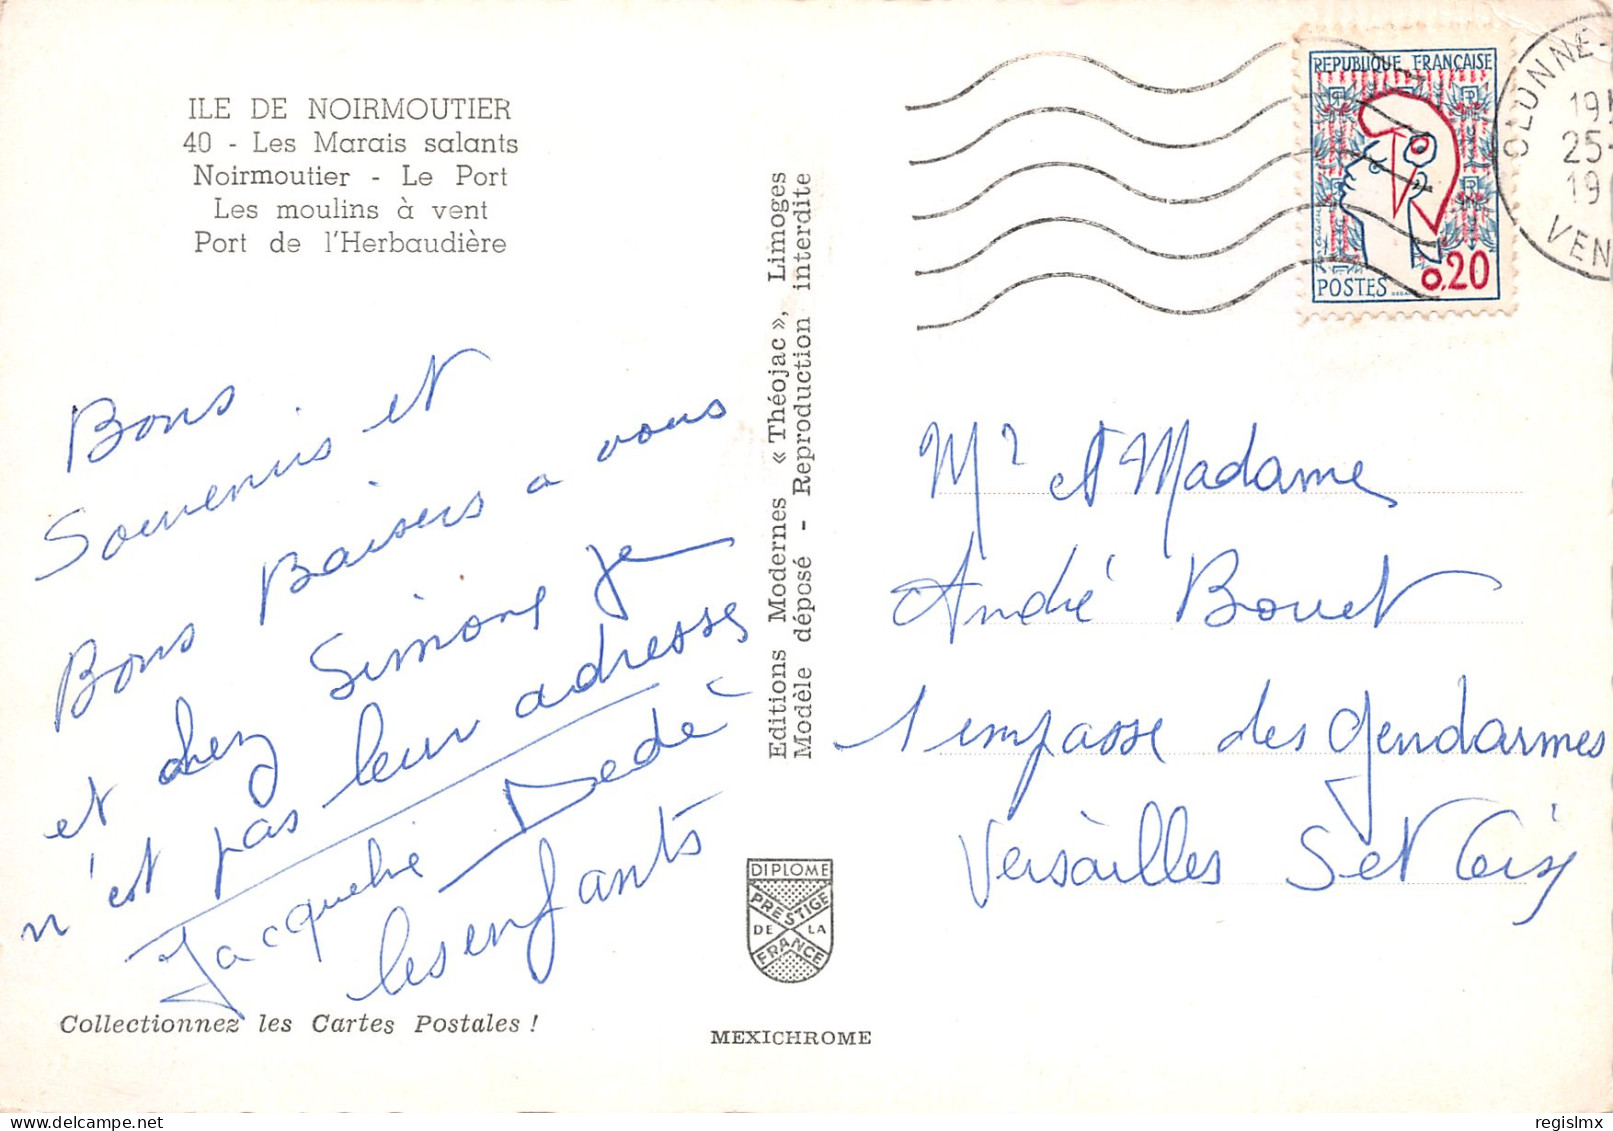 ILE DE NOIRMOUTIER
40 - Les Marais salants
Noirmoutier - Le Port
Les moulins à vent
Port de l'Herbaudière
Bons
Souvenirs et
Bons Baisers a vous
et chez Simone je
n'est pas leur adresses
Jacqueline Dedé
les enfants
Collectionnez les Cartes Postales !
Editions Modernes « Théojac », Limoges
Modèle déposé - Reproduction interdite
DIPLOME
PRESTIGE
DE LA
FRANCE
MEXICHROME
REPUBLIQUE FRANÇAISE
POSTES 0,20
OLONNE-
19H
25-
19
VEN
Mr et Madame
André Bouet
1 empasse des Gendarmes
Versailles Set Oise
regislmx